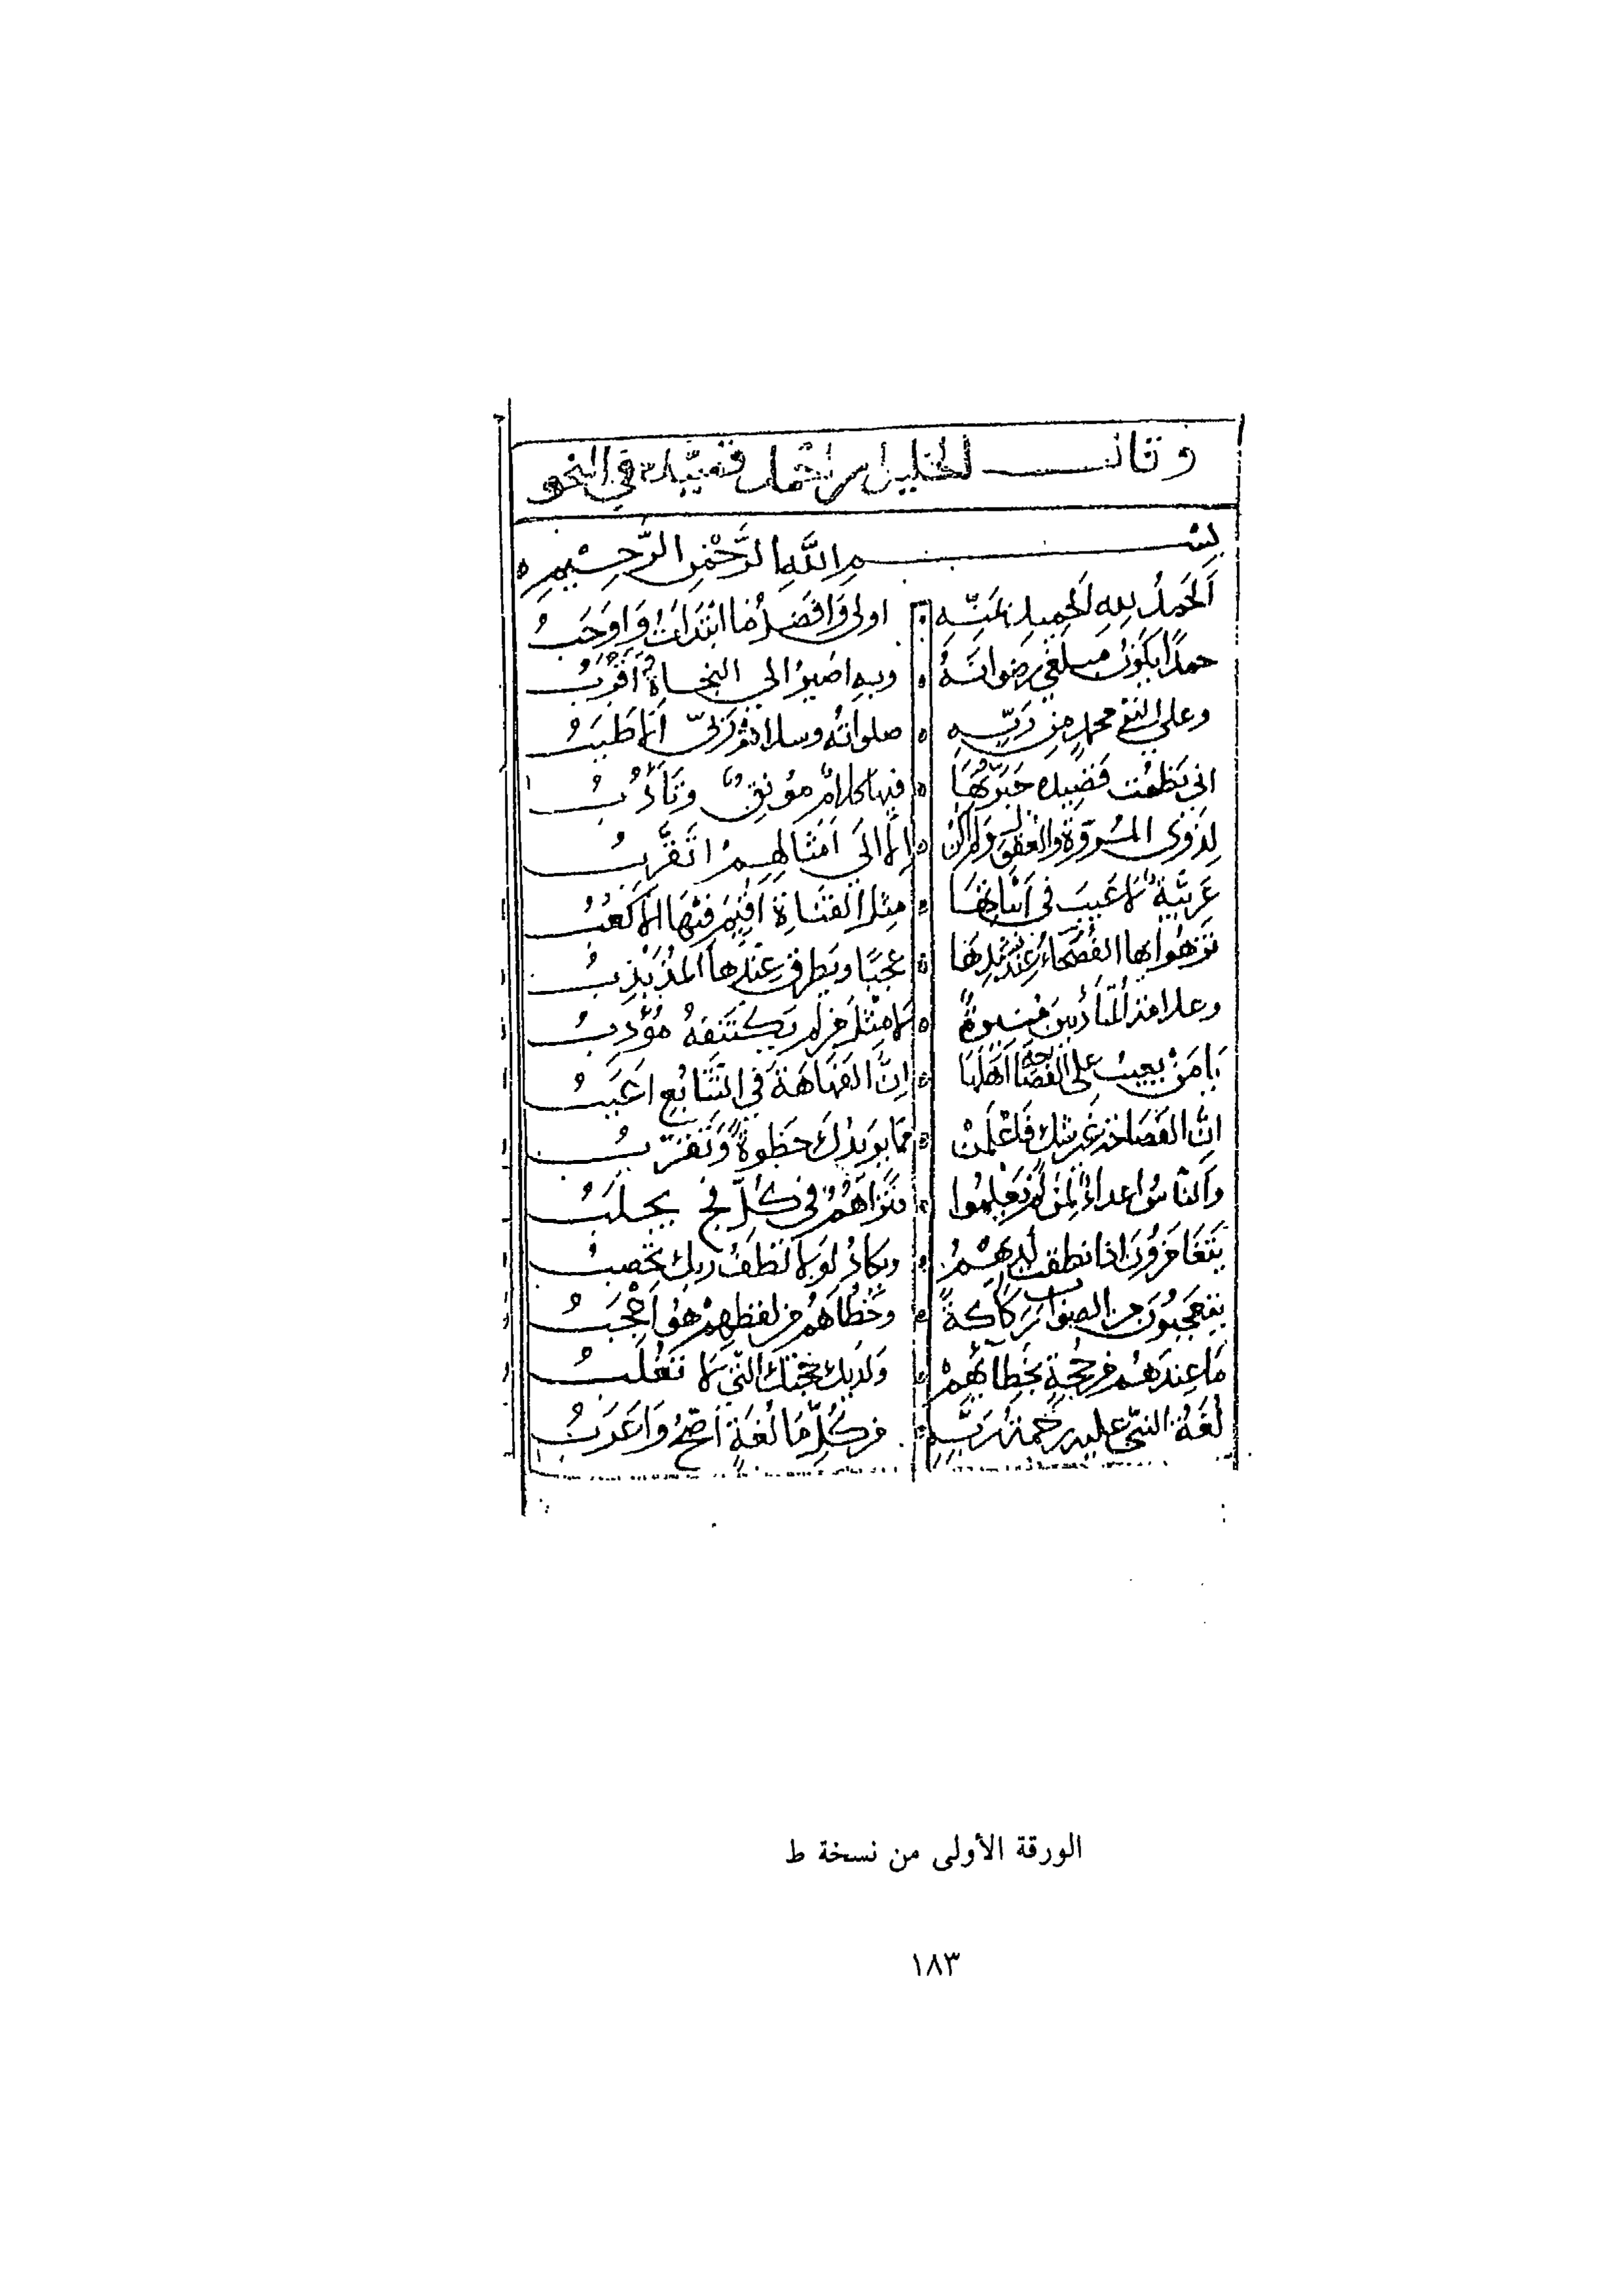 وقال الخليل بن احمد قصيدة في النحو
بسم الله الرحمن الرحيم
الحمد لله الحميد بمنه اولى وافضل ما ابتدات واوجب
حمدا يكون مبلغي رضوانه وبه اصير الى النجاة واقرب
وعلى النبي محمد من ربه صلواته وسلام ربي الاطيب
اني نظمت قصيدة حبرتها فيها كلام مونق وتأدب
لذوي المروة والعقول ولم اكن الا الى امثالهم اتقرب
عربية لا عيب في ابياتها مثل القناة اقيم فيها الاكعب
تزهو بها الفصحاء عند نشيدها عجبا ويطرق عندها المذبذب
المتأدبين لا مثل من لم يكتنفه مؤدب
يا من يعيب على الفصاحة اهلها ان الفهاهة في التتابع اعيب
ان الفصاحة غير شك فاعلمن مما يزيدك حظوة ويقرب
والناس اعداء لمن لم يعلموا فتراهم في كل فج يجلب
يتغامزون اذا نطقت لديهم وتكاد لولا لطف ربك تحصب
يتعجبون من الصواب ركاكة وخطاهم من لفظهم هو اعجب
ما عندهم من حجة بخطائهم ولديك حجتك التي لا تغلب
لغة النبي عليه رحمة ربه من كل ما لغة اصح واعرب
الورقة الأولى من نسخة ط
١٨٣